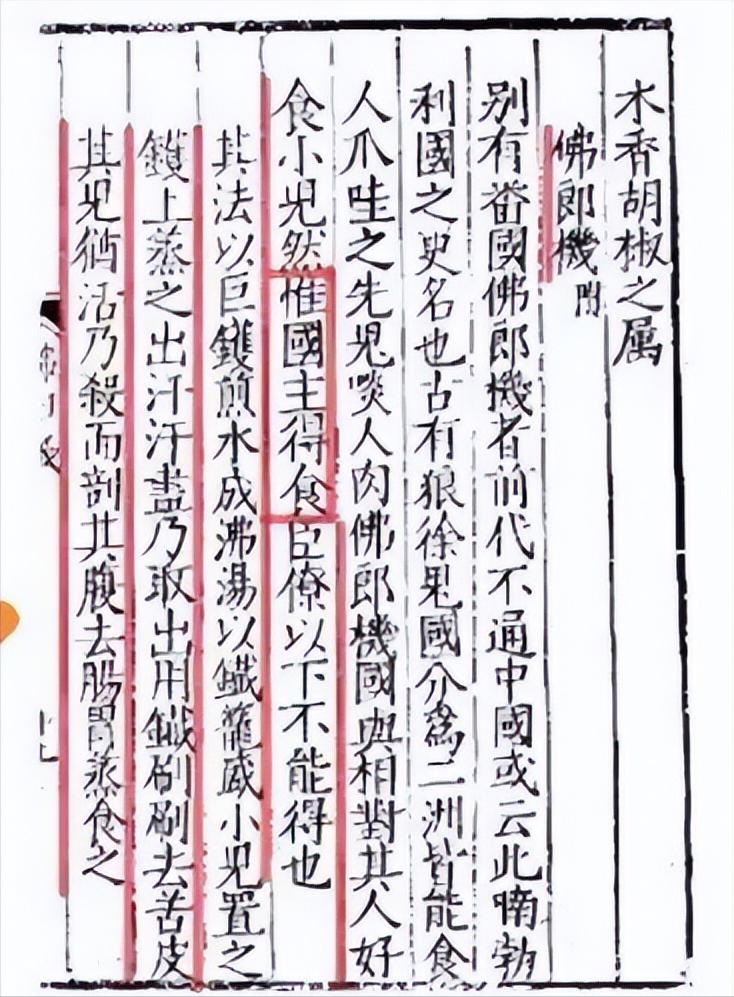 木香胡椒之属
佛郎機附
别有畨國佛郎機者前代不通中國或云此喃勃
利國之更名也古有狼徐鬼國分爲二洲皆能食
人爪哇之先鬼啖人肉佛郎機國與相對其人好
食小児然惟國主得食臣僚以下不能得也
其法以巨鑊煎水成沸湯以鐵籠盛小児置之
鑊上蒸之出汗汗盡乃取出用鐵刷刷去苦皮
其児猶活乃殺而剖其腹去腸胃蒸食之